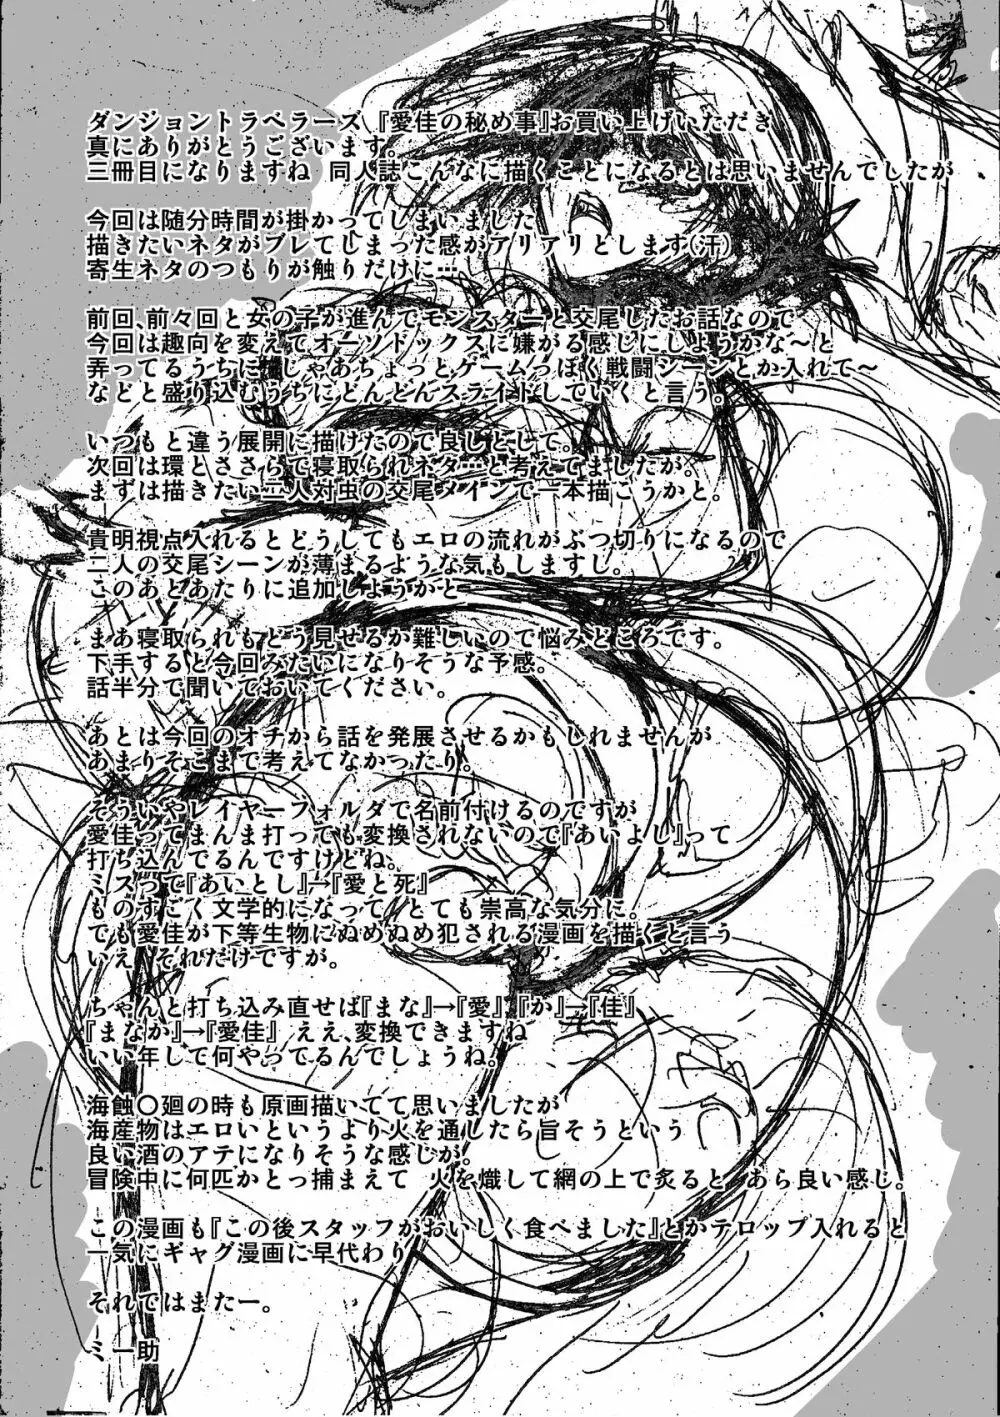 ダンジョントラベラーズ『愛佳の秘め事』お買い上げいただき
真にありがとうございます。
三冊目になりますね　同人誌こんなに描くことになるとは思いませんでしたが
今回は随分時間が掛かってしまいました
描きたいネタがブレてしまった感がアリアリとします(汗)
寄生ネタのつもりが触りだけに…
前回、前々回と女の子が進んでモンスターと交尾したお話なので
今回は趣向を変えてオーソドックスに嫌がる感じにしようかな～と
弄ってるうちに、じゃあちょっとゲームっぽく戦闘シーンとか入れて～
などと盛り込むうちにどんどんスライドしていくと言う。
いつもと違う展開に描けたので良しとして。
次回は環とささらで寝取られネタ…と考えてましたが。
まずは描きたい二人対虫の交尾メインで一本描こうかと。
貴明視点入れるとどうしてもエロの流れがぶつ切りになるので
二人の交尾シーンが薄まるような気もしますし。
このあとあたりに追加しようかと
まあ寝取られもどう見せるか難しいので悩みどころです。
下手すると今回みたいになりそうな予感。
話半分で聞いておいてください。
あとは今回のオチから話を発展させるかもしれませんが
あまりそこまで考えてなかったり。
そういやレイヤーフォルダで名前付けるのですが
愛佳ってまんま打っても変換されないので『あいよし』って
打ち込んでるんですけどね。
ミスって『あいとし』→『愛と死』
ものすごく文学的になって、とても崇高な気分に。
でも愛佳が下等生物にぬめぬめ犯される漫画を描くと言う
いえ、それだけですが。
ちゃんと打ち込み直せば『まな』→『愛』、『か』→『佳』
『まなか』→『愛佳』　ええ、変換できますね
いい年して何やってるんでしょうね。
海蝕〇廻の時も原画描いてて思いましたが
海産物はエロいというより火を通したら旨そうという
良い酒のアテになりそうな感じが。
冒険中に何匹かとっ捕まえて　火を熾して網の上で炙ると　あら良い感じ。
この漫画も『この後スタッフがおいしく食べました』とかテロップ入れると
一気にギャグ漫画に早代わり
それではまたー。
ミー助